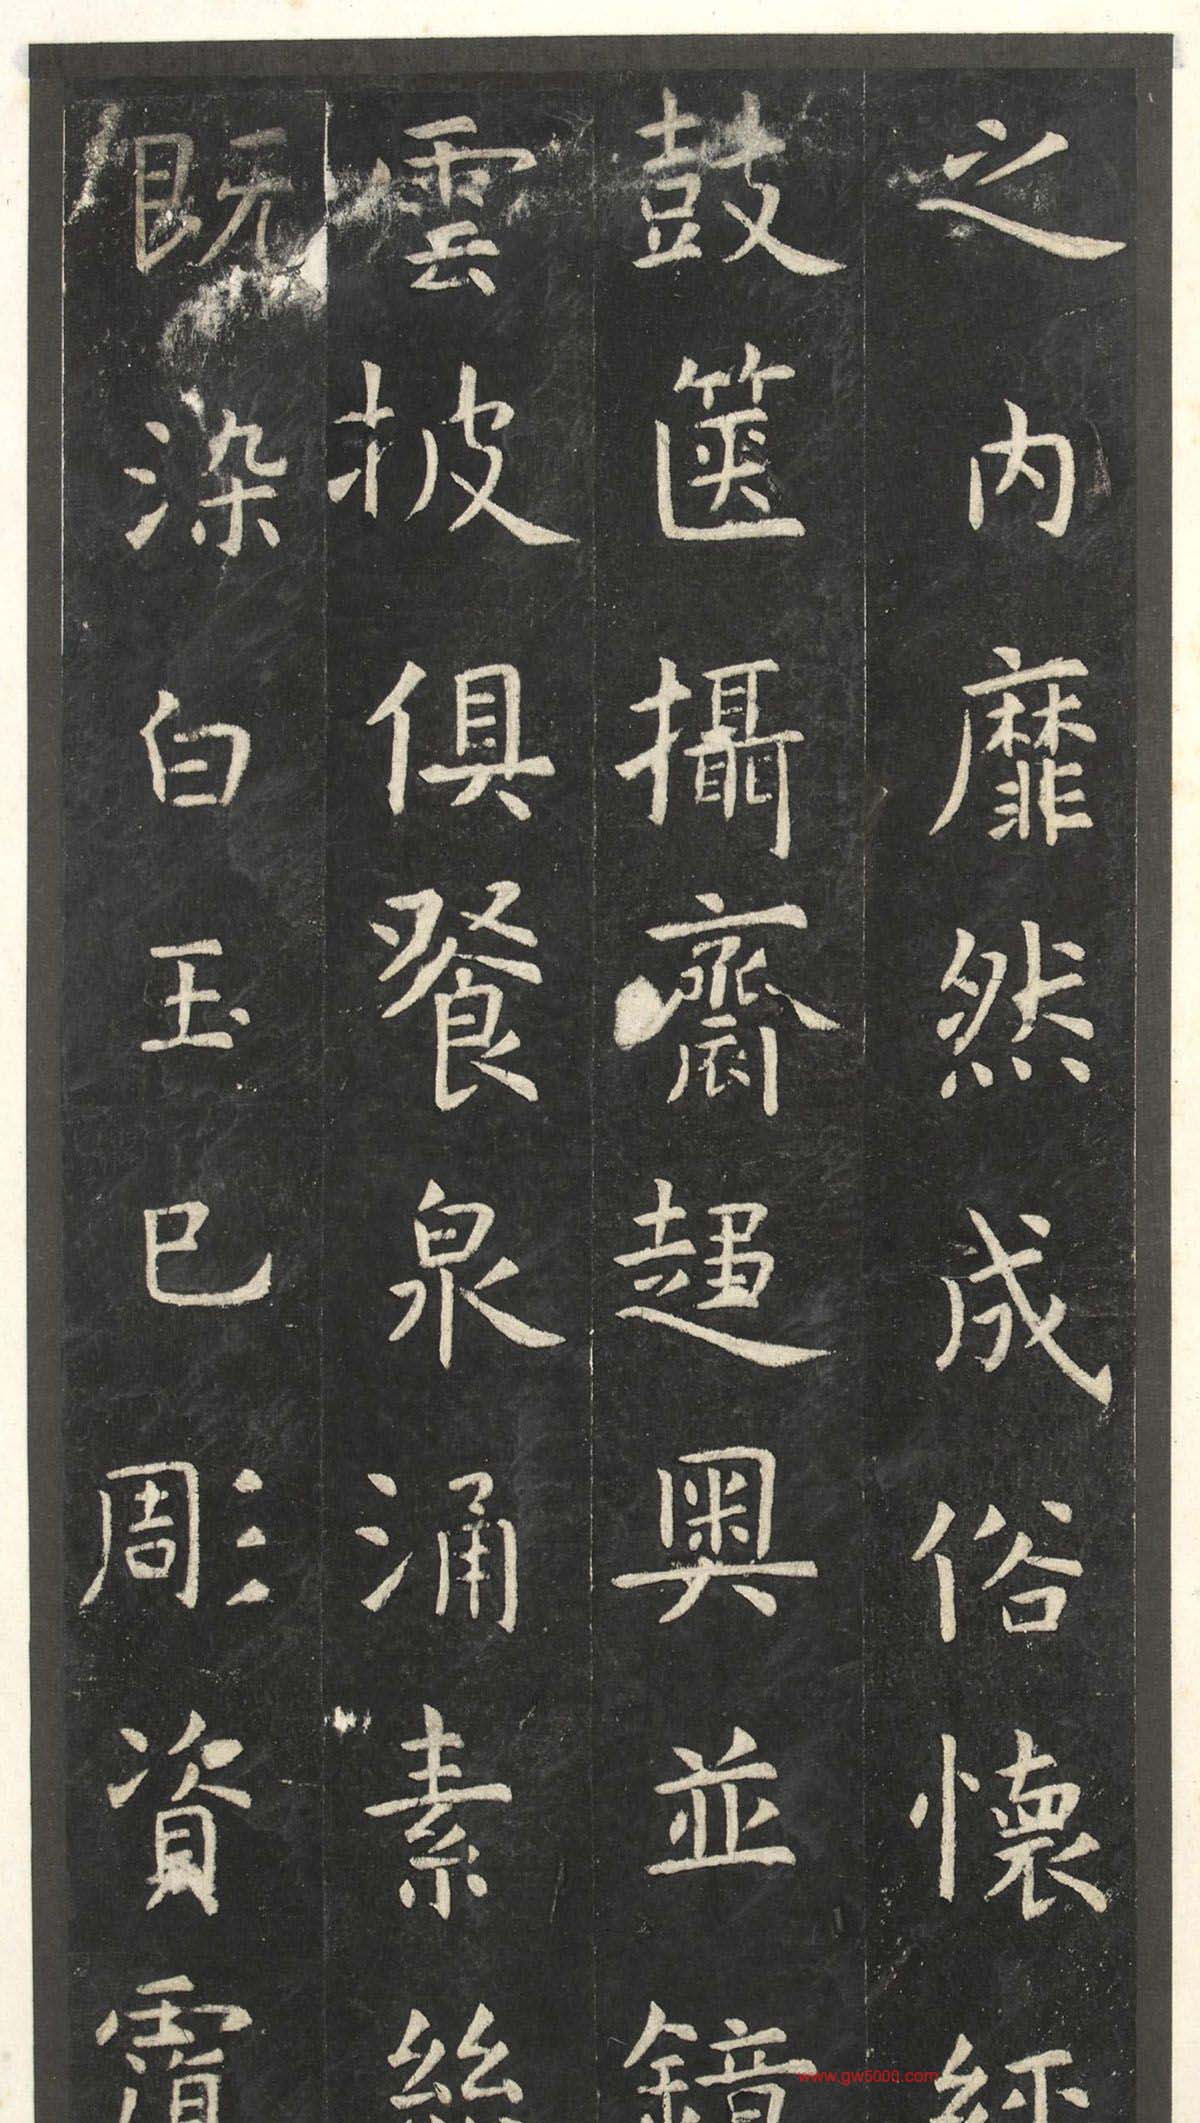 之内靡然成俗懷經
鼓篋攝齋趨奧並鏡
雲披俱餐泉涌素絲
既染白玉已彫資覆
www.gw5000.com